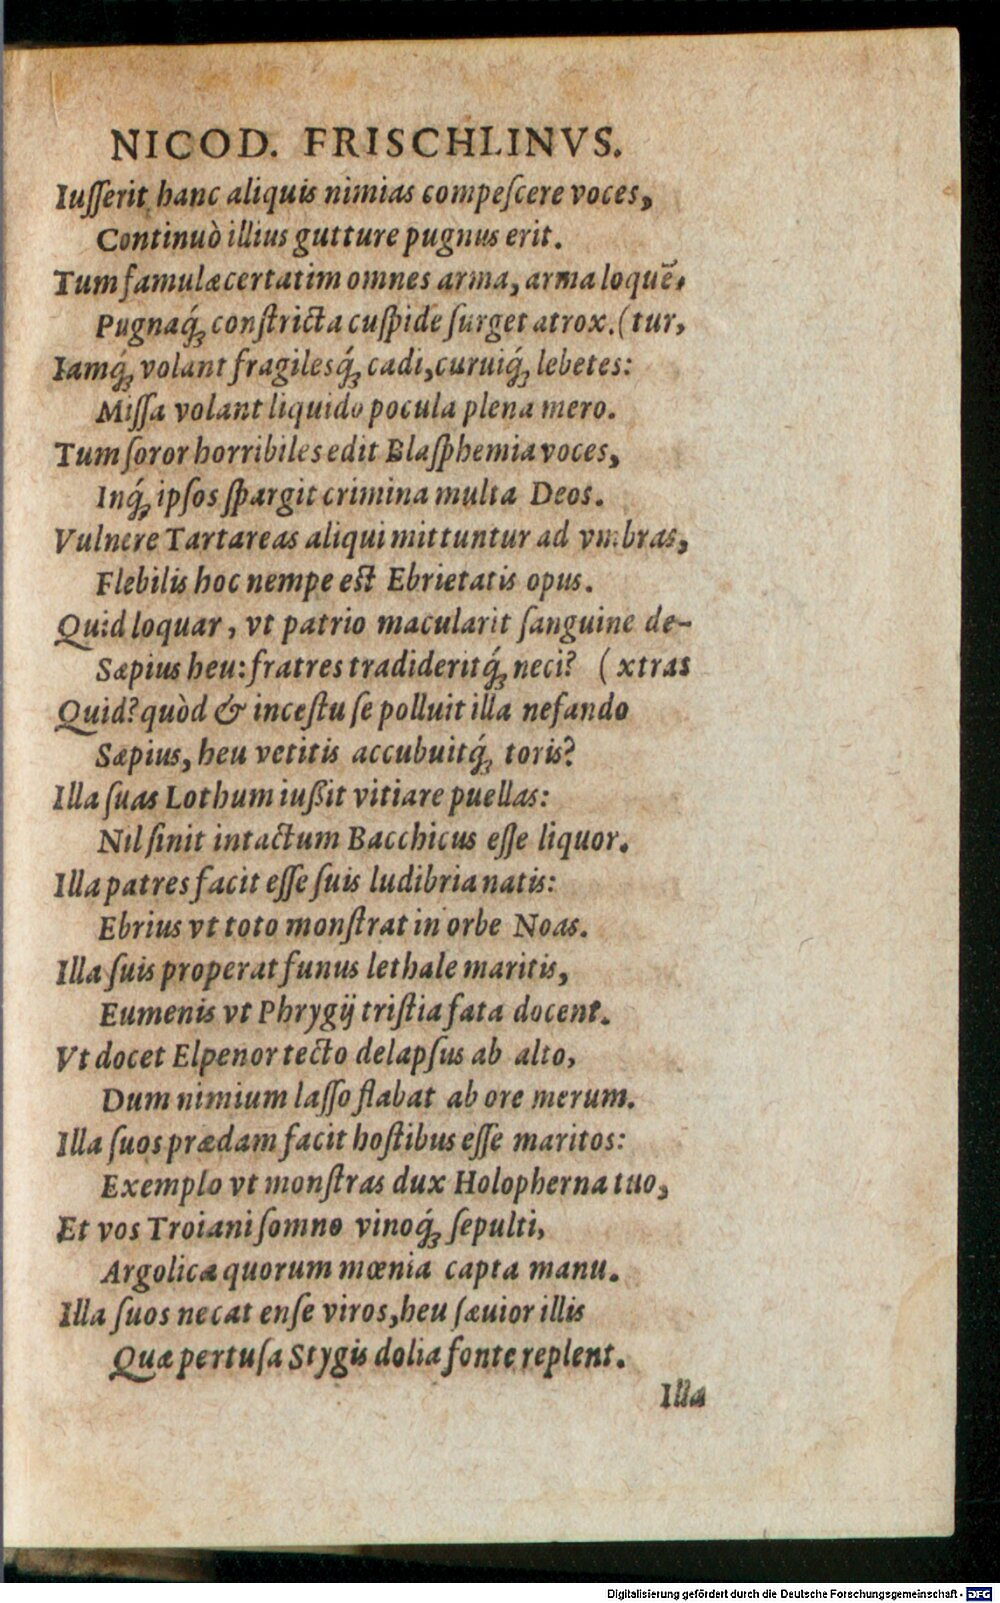 NICOD. FRISCHLINVS.
Iuſſerit hanc aliquis nimias compeſcere voces,
Continuò illius gutture pugnus erit.
Tum famulæ certatim omnes arma, arma loquẽ-
Pugnaq́; conſtricta cuſpide ſurget atrox. (tur,
Iamq́; volant fragilesq́; cadi, curuiq́; lebetes:
Miſſa volant liquido pocula plena mero.
Tum ſoror horribiles edit Blaſphemia voces,
Inq́; ipſos ſpargit crimina multa Deos.
Vulnere Tartareas aliqui mittuntur ad vmbras,
Flebilis hoc nempe eſt Ebrietatis opus.
Quid loquar, vt patrio macularit ſanguine de-
Sæpius heu: fratres tradideritq́; neci? (xtras
Quid? quòd & inceſtu ſe polluit illa nefando
Sæpius, heu vetitis accubuitq́; toris?
Illa ſuas Lothum iußit vitiare puellas:
Nil ſinit intactum Bacchicus eſſe liquor.
Illa patres facit eſſe ſuis ludibria natis:
Ebrius vt toto monſtrat in orbe Noas.
Illa ſuis properat funus lethale maritis,
Eumenis vt Phrygij triſtia fata docent.
Vt docet Elpenor tecto delapſus ab alto,
Dum nimium laſſo flabat ab ore merum.
Illa ſuos prædam facit hoſtibus eſſe maritos:
Exemplo vt monſtras dux Holopherna tuo,
Et vos Troiani ſomno vinoq́; ſepulti,
Argolica quorum mœnia capta manu.
Illa ſuos necat enſe viros, heu ſæuior illis
Quæ pertuſa Stygis dolia fonte replent.
Illa
Digitalisierung gefördert durch die Deutsche Forschungsgemeinschaft - DFG